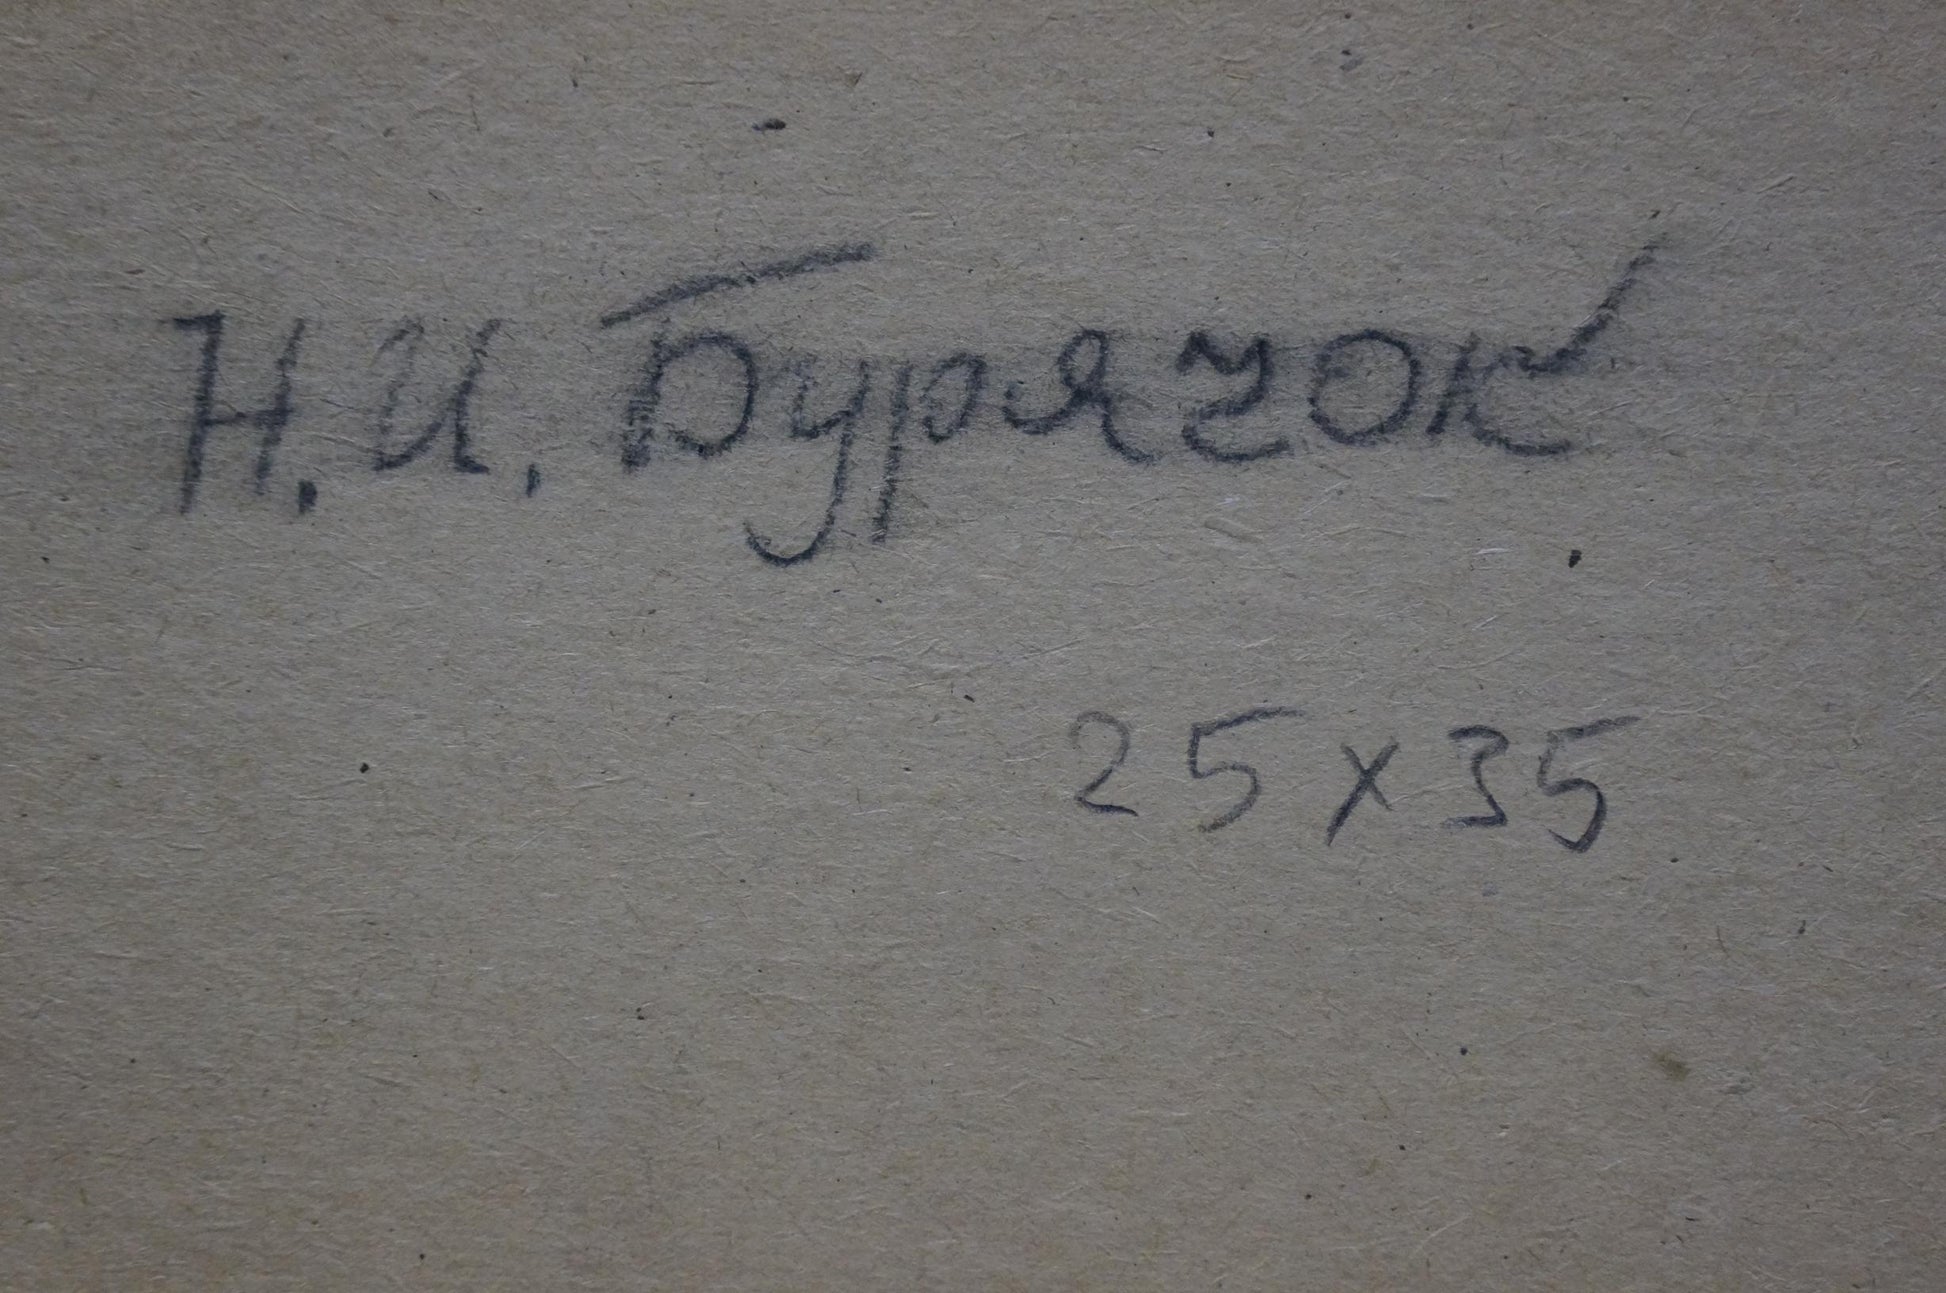 Н.И. Бурячок
25х35